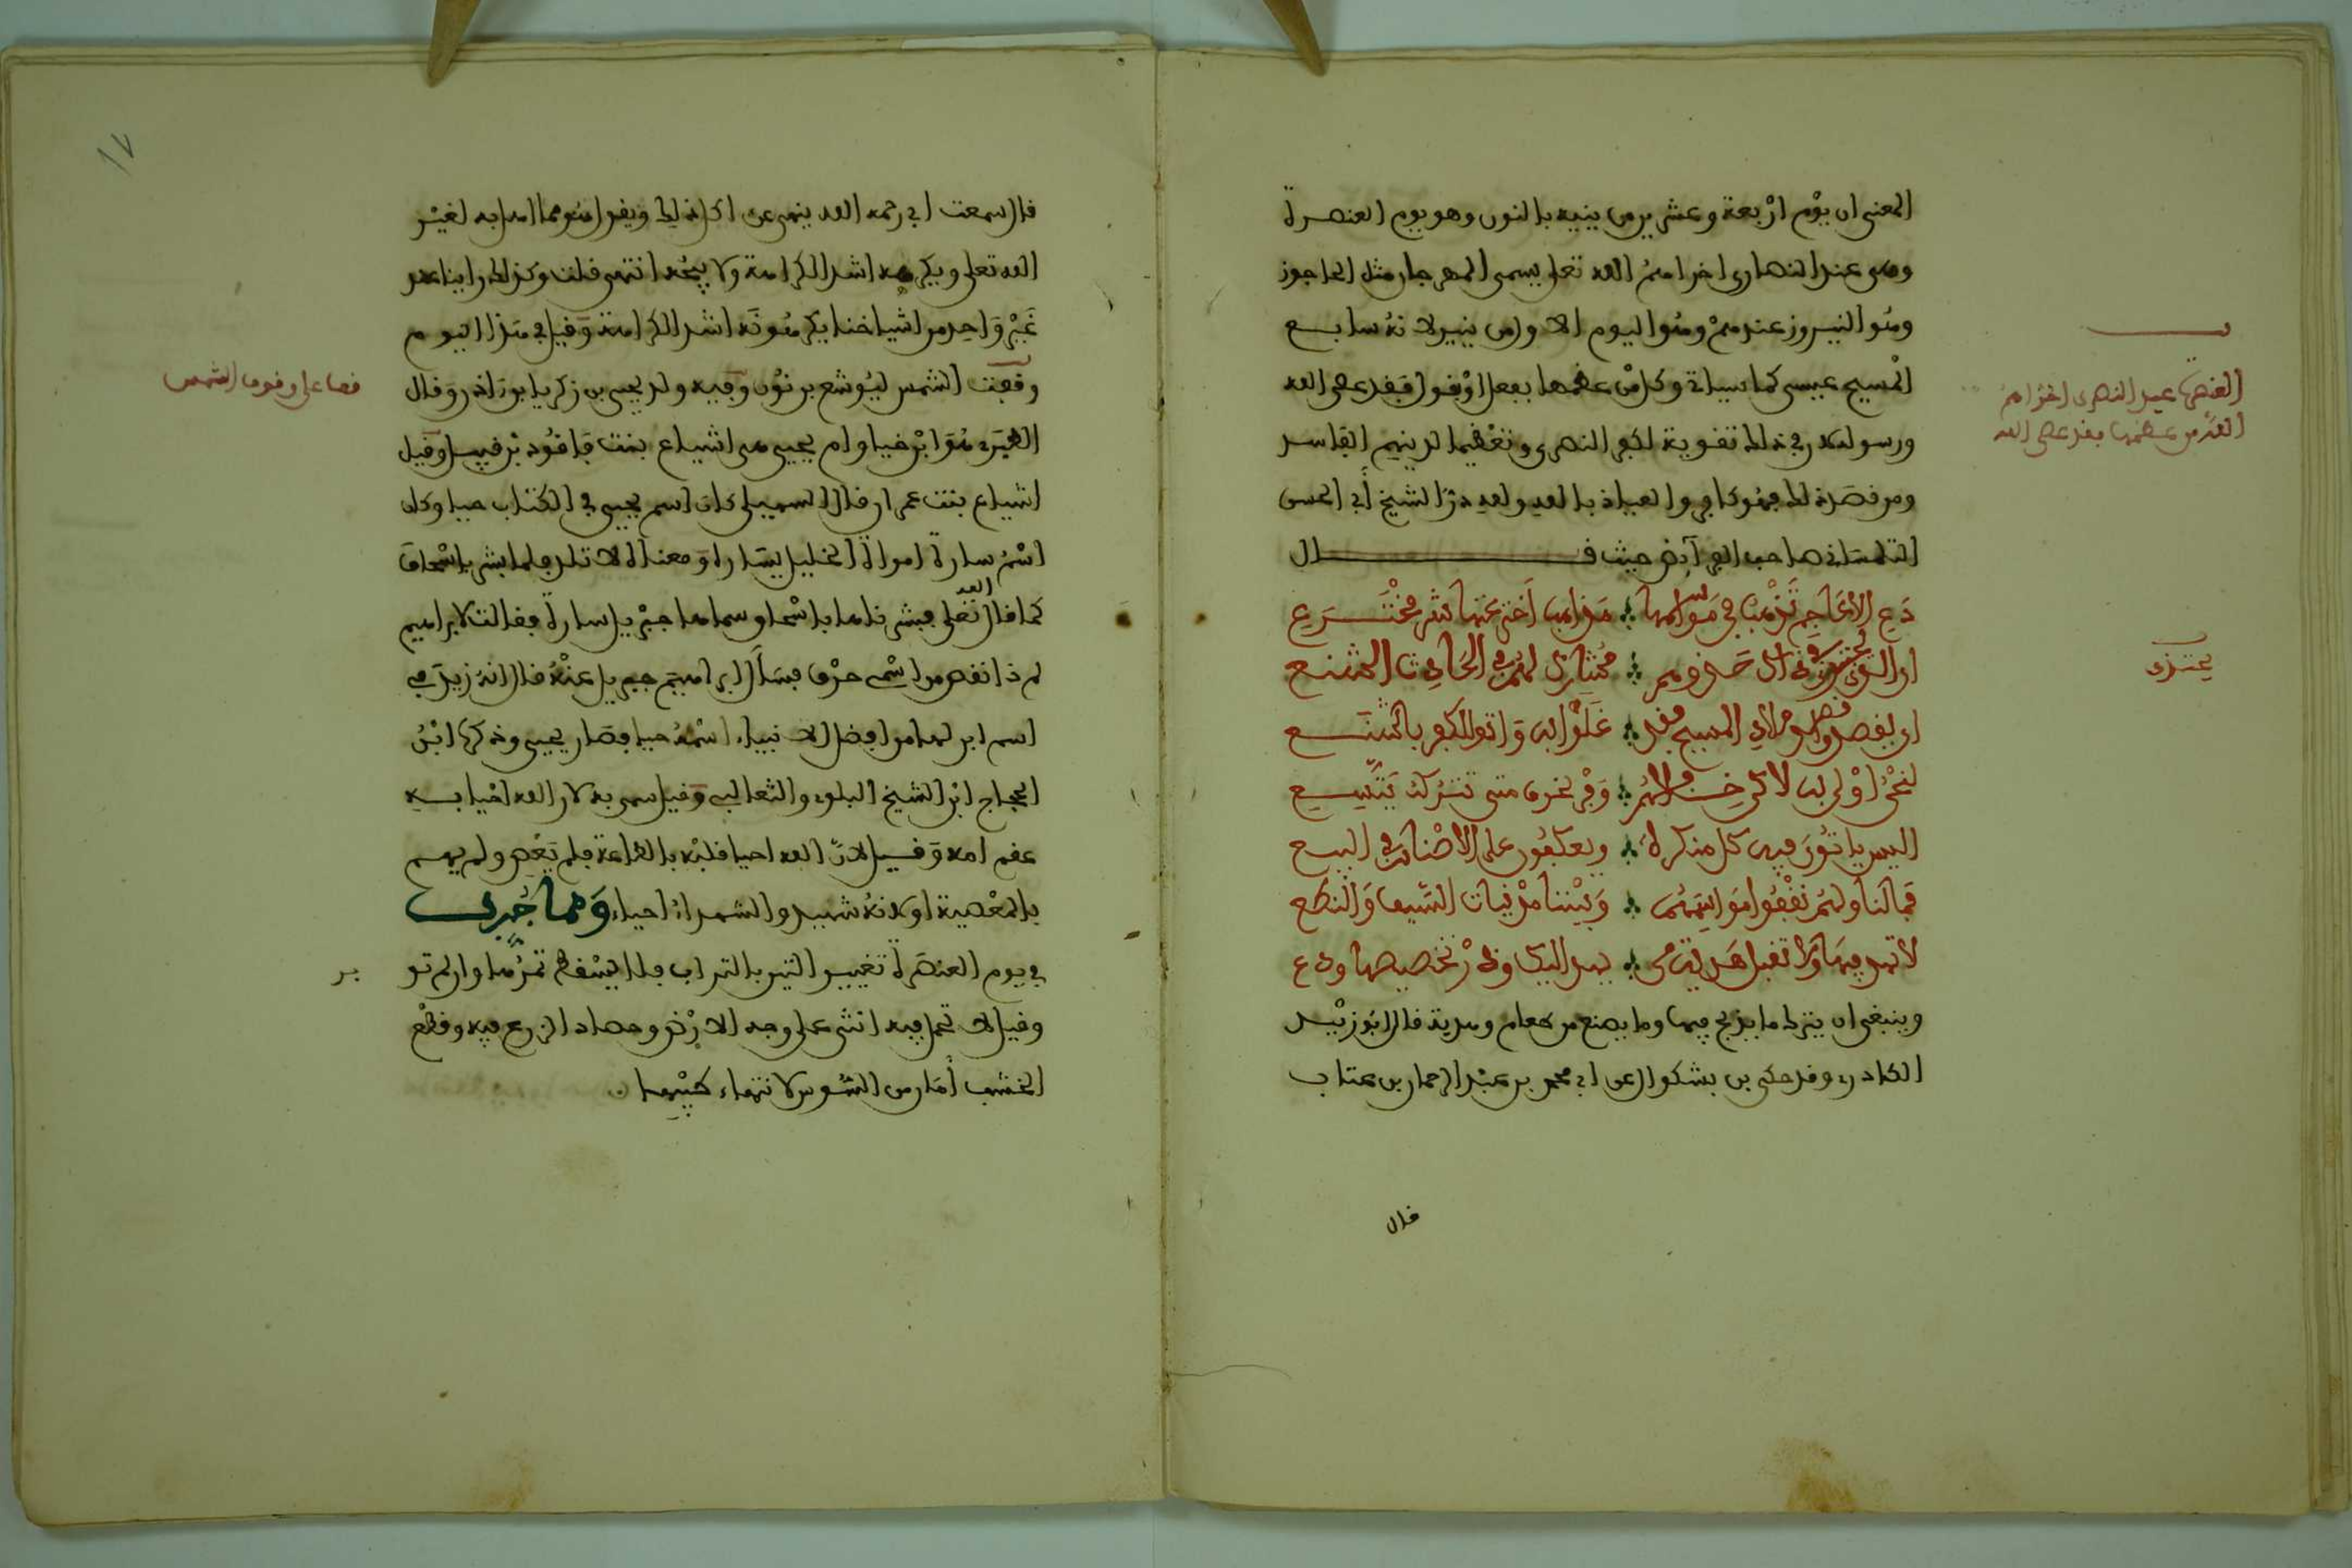 المعنى ان يوم اربعة وعشرين من ينيه بالنون وهو يوم العنصرة
وهى عند النصارى اخزاهم الله تعلى يسمى المهرجان مثل الحاجوز
وهو النيروز عندهم وهو اليوم الاول من ينير لانه سابع
المسيح عيسى كما سياتى وكل من عظمها بفعل او بقول فقد عصى الله
ورسوله لان فى ذلك تقوية لكفر النصرى وتعظيما لدينهم الفاسد
ومن قصد ذلك فهو كافر والعياذ بالله ولله در الشيخ أبى الحسن
التلمسانى صاحب الفرآيض حيث قال
دع الاعاجم تذهب فى مواسمها مذاهب اخترعتها شر مخترع
ان يقصدوا ميلاد المسيح فقد غلوا به واتوا الكفر بالشنع
لنحن اولى به لاكن نخالفهم
اليس ياتون فيه كل منكرة ويعكفون على الاصنام فى البيع
فما لنا ولهم نقفوا مواسمهم وبيننا مرهفات السيف والنطع
لا تهد فيها ولا تقبل هدية من يهد اليك وذر تخصيصها ودع
وينبغى ان يترك ما يذبح فيها وما يصنع من طعام وهدية قال ابو زيد
الكادرى وقد حكى بن بشكوال عن ابى محمد بن عبد الرحمان بن عتاب
قال
العنصرة عيد النصرى اخزاهم
الله من عظمها فقد عصى الله
١٧
قال سمعت ابى رحمه الله ينهى عن اكل ذلك ويقول هو مما اهل به لغير
الله تعلى ويكرهه اشد الكراهة ولا يبيحه انتهى قلت وكذلك راينا
غير واحد من اشياخنا يكرهونه اشد الكراهة وقيل فى هذا اليوم
وقفت الشمس ليوشع بن نون وفيه ولد يحيى بن زكريا بن اذن وقال
الطبرى هو ابن برخيا وام يحيى هى اشياع بنت فاقود بن قبيل وقيل
اشياع بنت عمران قال السهيلى كان اسم يحيى فى الكتاب حيا وكان
اسم سارة امراة الخليل يسارة ومعناه لا تلد فلما بشر باسحاق
كما قال الله تعلى فبشرناها باسحاق وسماها جبريل سارة فقالت لابراهيم
لم ذا نقص من اسمى حرف فسأل ابراهيم جبريل عنه فقال انه زيد فى
اسم ابن لها من افضل الانبياء اسمه حيا فصار يحيى وذكرها ابن
الحجاج ابن الشيخ البلوى والثعالبى وقيل سمى به لان الله احيا به
عقم امه وقيل لان الله احيا قلبه بالطاعة فلم يعص ولم يهم
بالمعصية اولانه شهيد والشهداء احياء ومما جرب
فى يوم العنصرة تغيير التين بالتراب فلا يسقط تمرها وان لم تو بر
وقيل لا تحمل فيه انثى على وجه الارض وحصاد الزرع فيه وقطع
الخشب أمان من السوس لانتهاء طيبها
قصا على وقوف الشمس